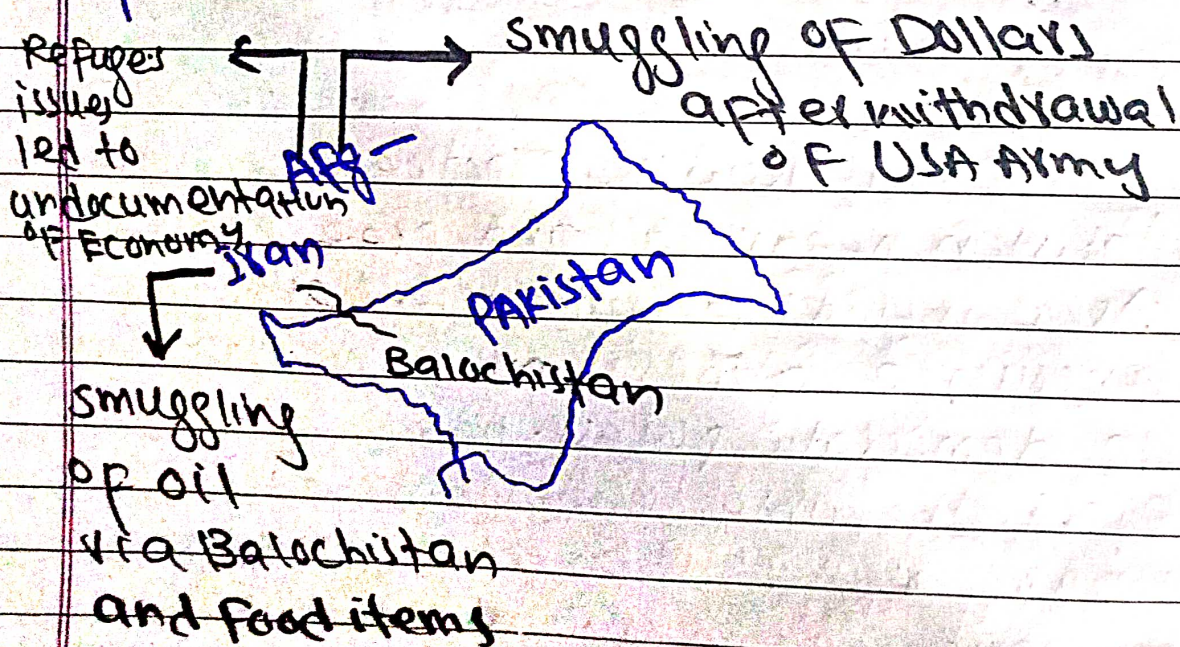 Refuges
issues
led to
undocumentation
of Economy
smuggling of Dollars
after withdrawal
of USA Army
Afg-
Iran
PAKistan
Balochistan
smuggling
of oil
via Balochistan
and food items